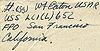 Wheaton USNR
USS LCI(L) 652
FPO San Francisco
California.